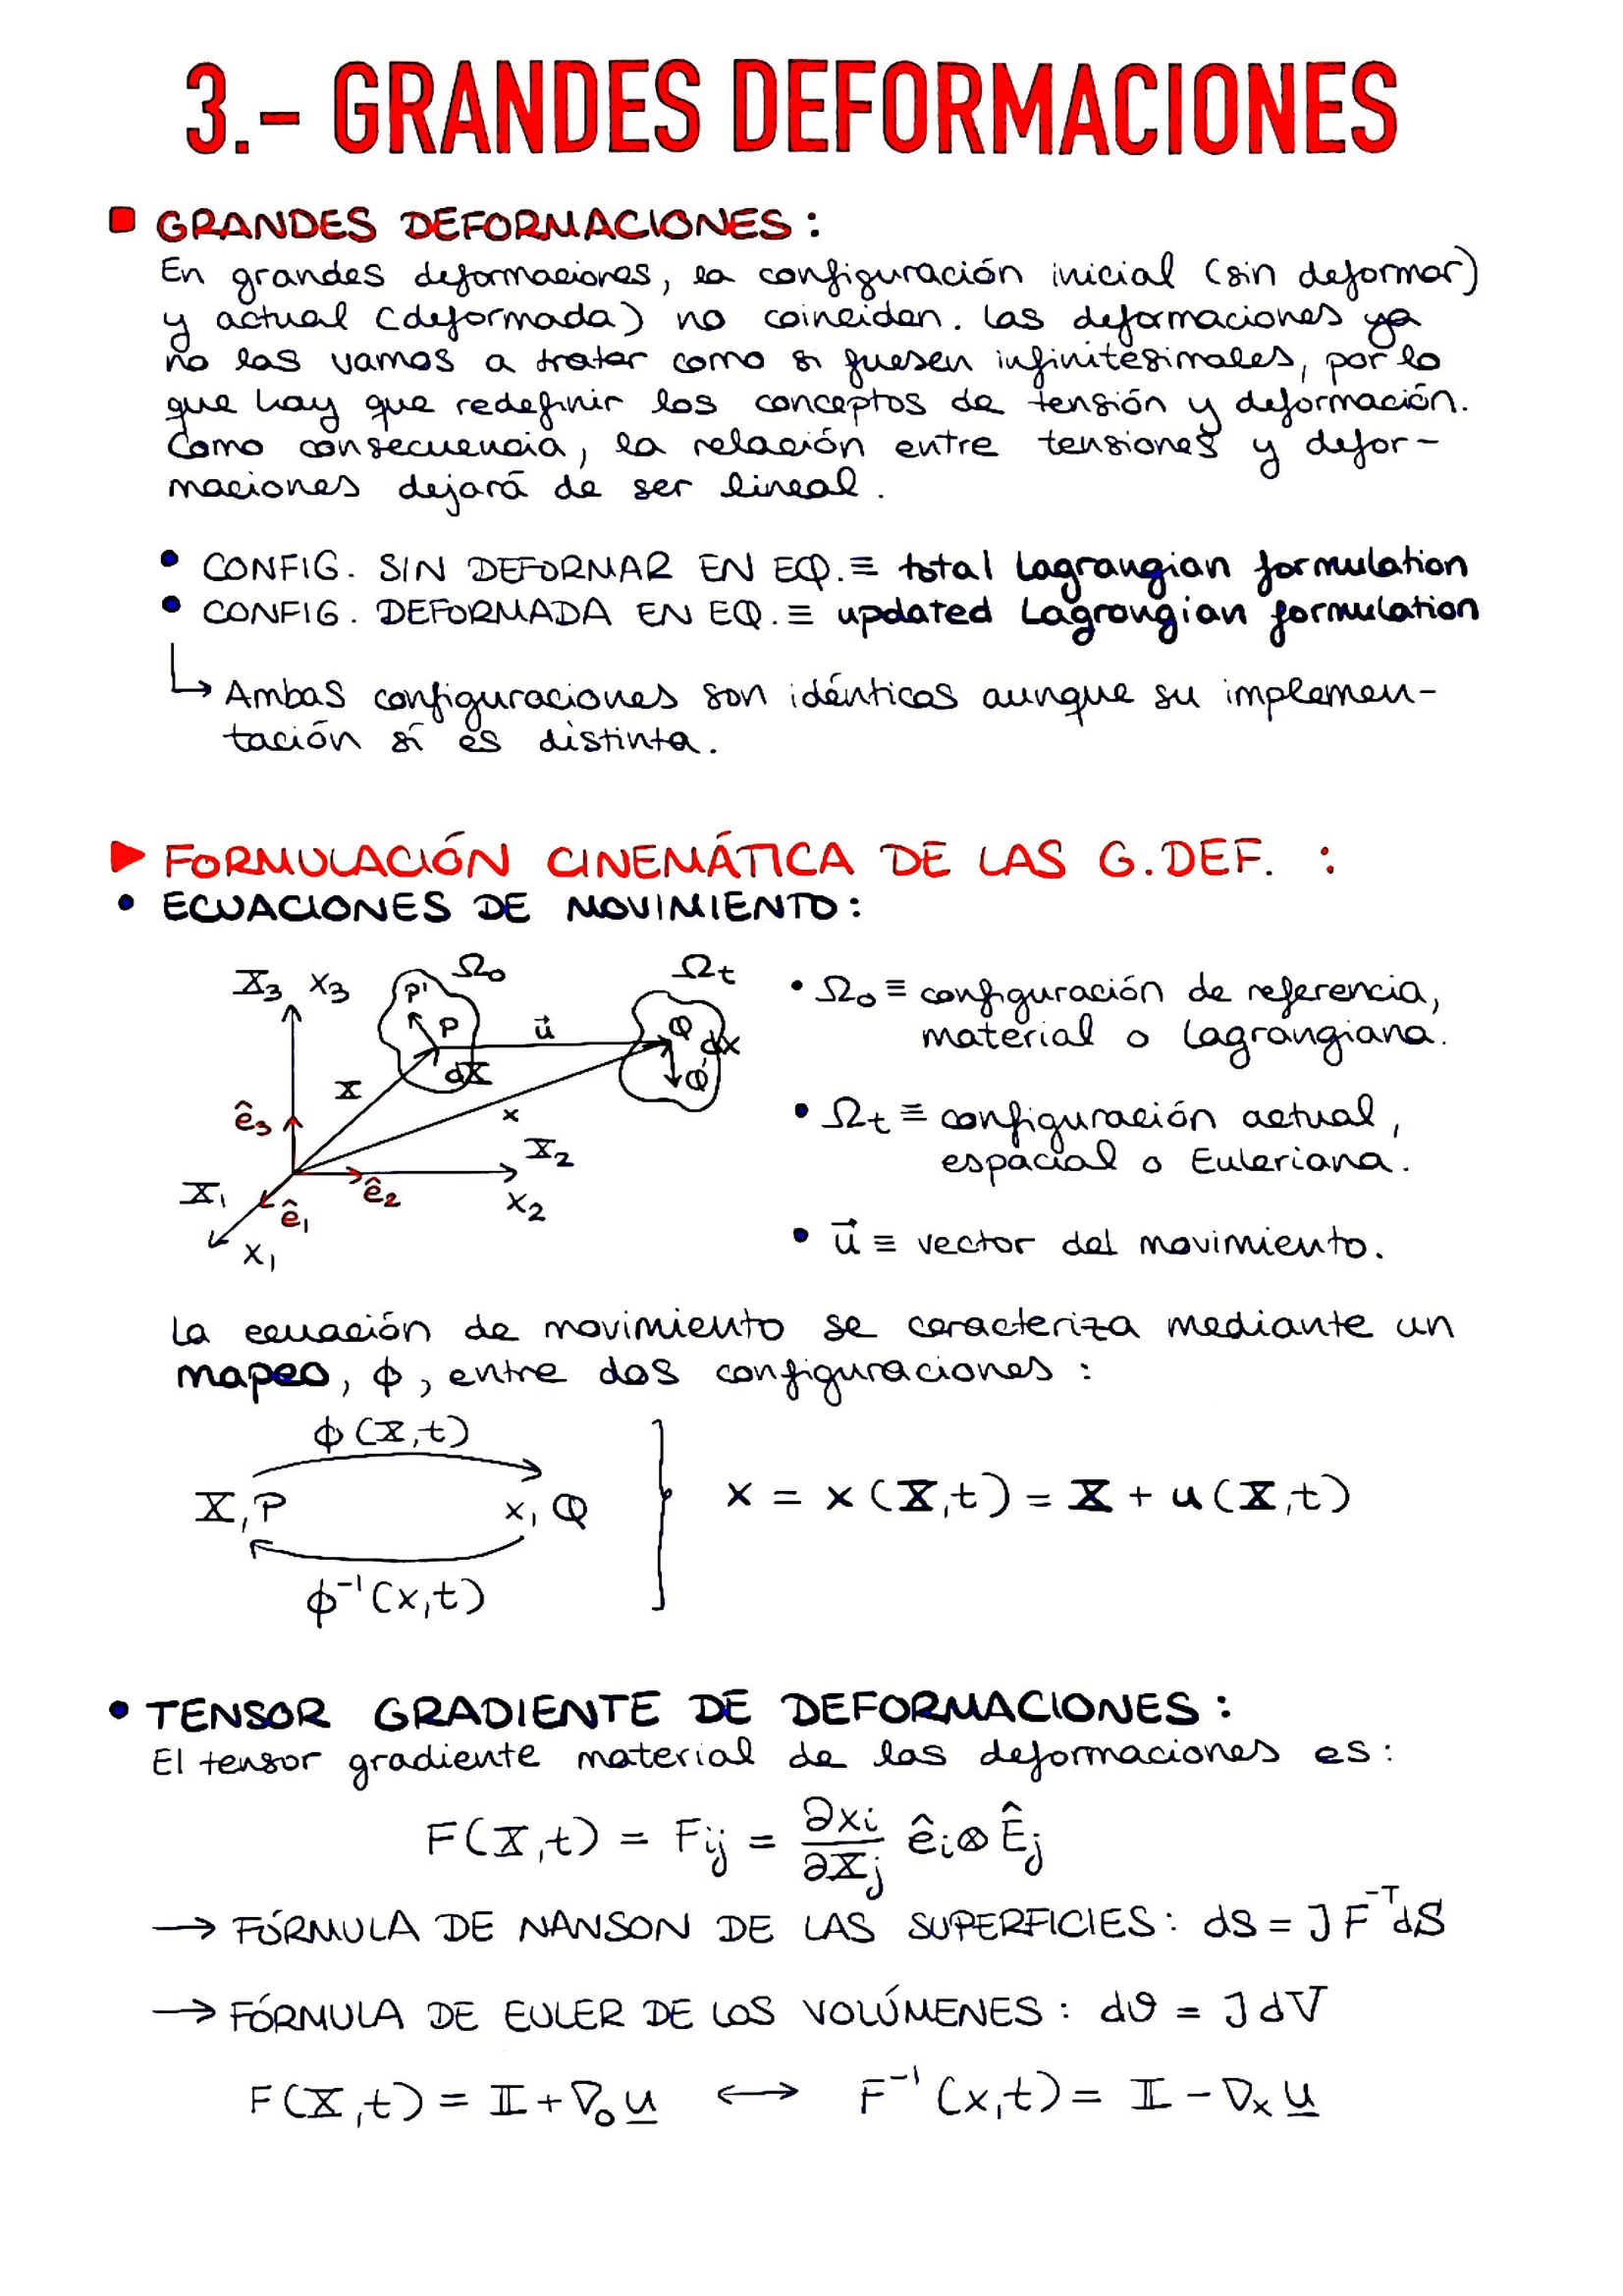 3.- GRANDES DEFORMACIONES
GRANDES DEFORMACIONES:
En grandes deformaciones, la configuración inicial (sin deformar)
y actual (deformada) no coinciden. Las deformaciones ya
no las vamos a tratar como si fuesen infinitesimales, por lo
que hay que redefinir los conceptos de tensión y deformación.
Como consecuencia, la relación entre tensiones y defor-
maciones dejará de ser lineal.
• CONFIG. SIN DEFORMAR EN EQ. ≡ total Lagrangian formulation
• CONFIG. DEFORMADA EN EQ. ≡ updated Lagrangian formulation
↳ Ambas configuraciones son idénticas aunque su implemen-
tación sí es distinta.
► FORMULACIÓN CINEMÁTICA DE LAS G.DEF. :
• ECUACIONES DE MOVIMIENTO:
X₃ x₃ P' Ω₀ Ωt
P u⃗ Q dx
dX Q'
X
ê₃ x
X₂
X₁ ê₂
ê₁ x₂
x₁
• Ω₀ ≡ configuración de referencia,
material o Lagrangiana.
• Ωt ≡ configuración actual,
espacial o Euleriana.
• u⃗ ≡ vector del movimiento.
La ecuación de movimiento se caracteriza mediante un
mapeo, ϕ, entre dos configuraciones :
ϕ(X,t)
X,P x,Q x = x(X,t) = X + u(X,t)
ϕ⁻¹(x,t)
• TENSOR GRADIENTE DE DEFORMACIONES:
El tensor gradiente material de las deformaciones es:
F(X,t) = Fij = ∂xi/∂Xj êi⊗Êj
→ FÓRMULA DE NANSON DE LAS SUPERFICIES: ds = J F⁻ᵀ dS
→ FÓRMULA DE EULER DE LOS VOLÚMENES: dϑ = J dV
F(X,t) = I + ∇₀u ⟷ F⁻¹(x,t) = I - ∇ₓu